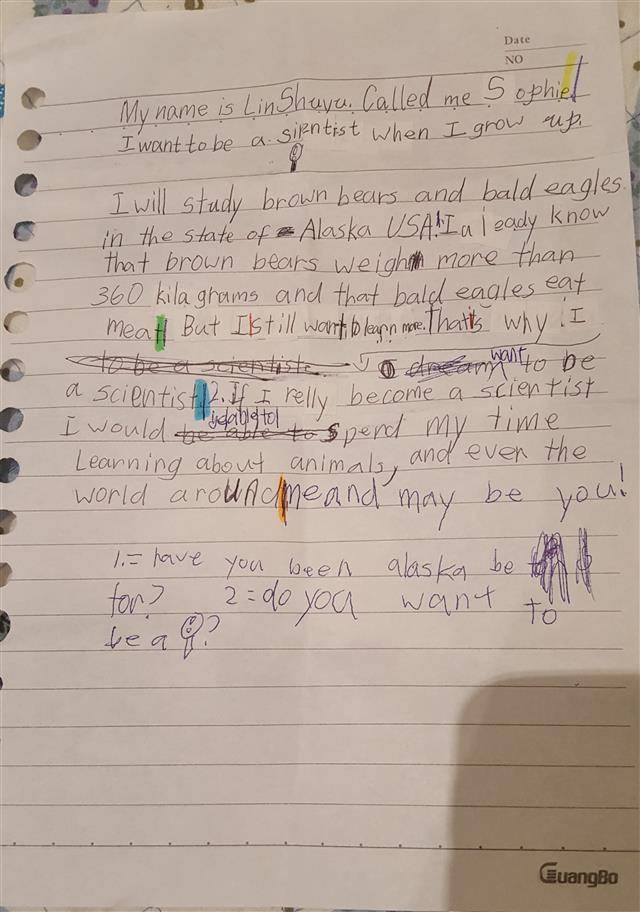 Date
NO
My name is LinShuyu. Called me Sophie!
I want to be a sientist when I grow up.
I will study brown bears and bald eagles.
in the state of Alaska USA! I already know
that brown bears weigh more than
360 kilagrams and that bald eagles eat
meat! But I still want to learn more. That's why I
to be a scientist want to be
a scientist! 2. If I relly become a scientist
I would be able to spend my time
Learning about animals, and even the
world around me and may be you!
1.= have you been alaska be
for? 2 = do you want to
be a ?
GuangBo